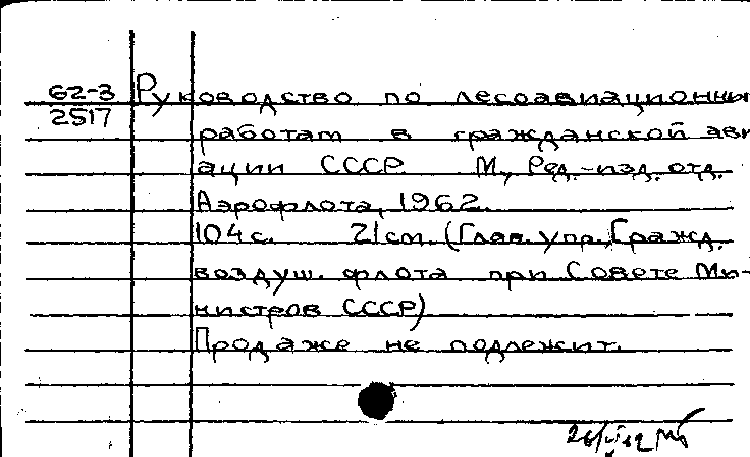 62-3
2517
Руководство по лесоавиационным
работам в гражданской ави
ации СССР. М., Ред.-изд. отд.
Аэрофлота, 1962.
104 с. 21 см. (Глав. упр. Гражд.
воздуш. флота при Совете Ми-
нистров СССР)
Продаже не подлежит.